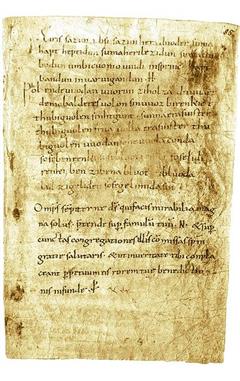 Eiris sazun idisi sazun hera duoder suma
hapt heptidun suma heri lezidun suma clu
bodun umbicuonio uuidi insprinc hapt
bandun inuar uigandun .H.
Phol endeuuodan uuorun ziholza du uuart
demobalderes uolon sinuuoz birenkict
thubiguolen sinhtgunt sunna erasuister
thubiguolen friia uolla erasuister thu
biguolen uuodan conda
sosebenrenki soselidi
renki ben zibena bluot zibluoda
lid zigeliden sosegelimida sin
Omps sempiterne ds qui facis mirabilia mag
na solus ptende sup famulu tuu N & sup
cunctas congregationes illi comissas spm
gratiae salutaris & ut inueritate tibi compla
ceant ppetuum eis rore tuae benedictio
nis infunde p